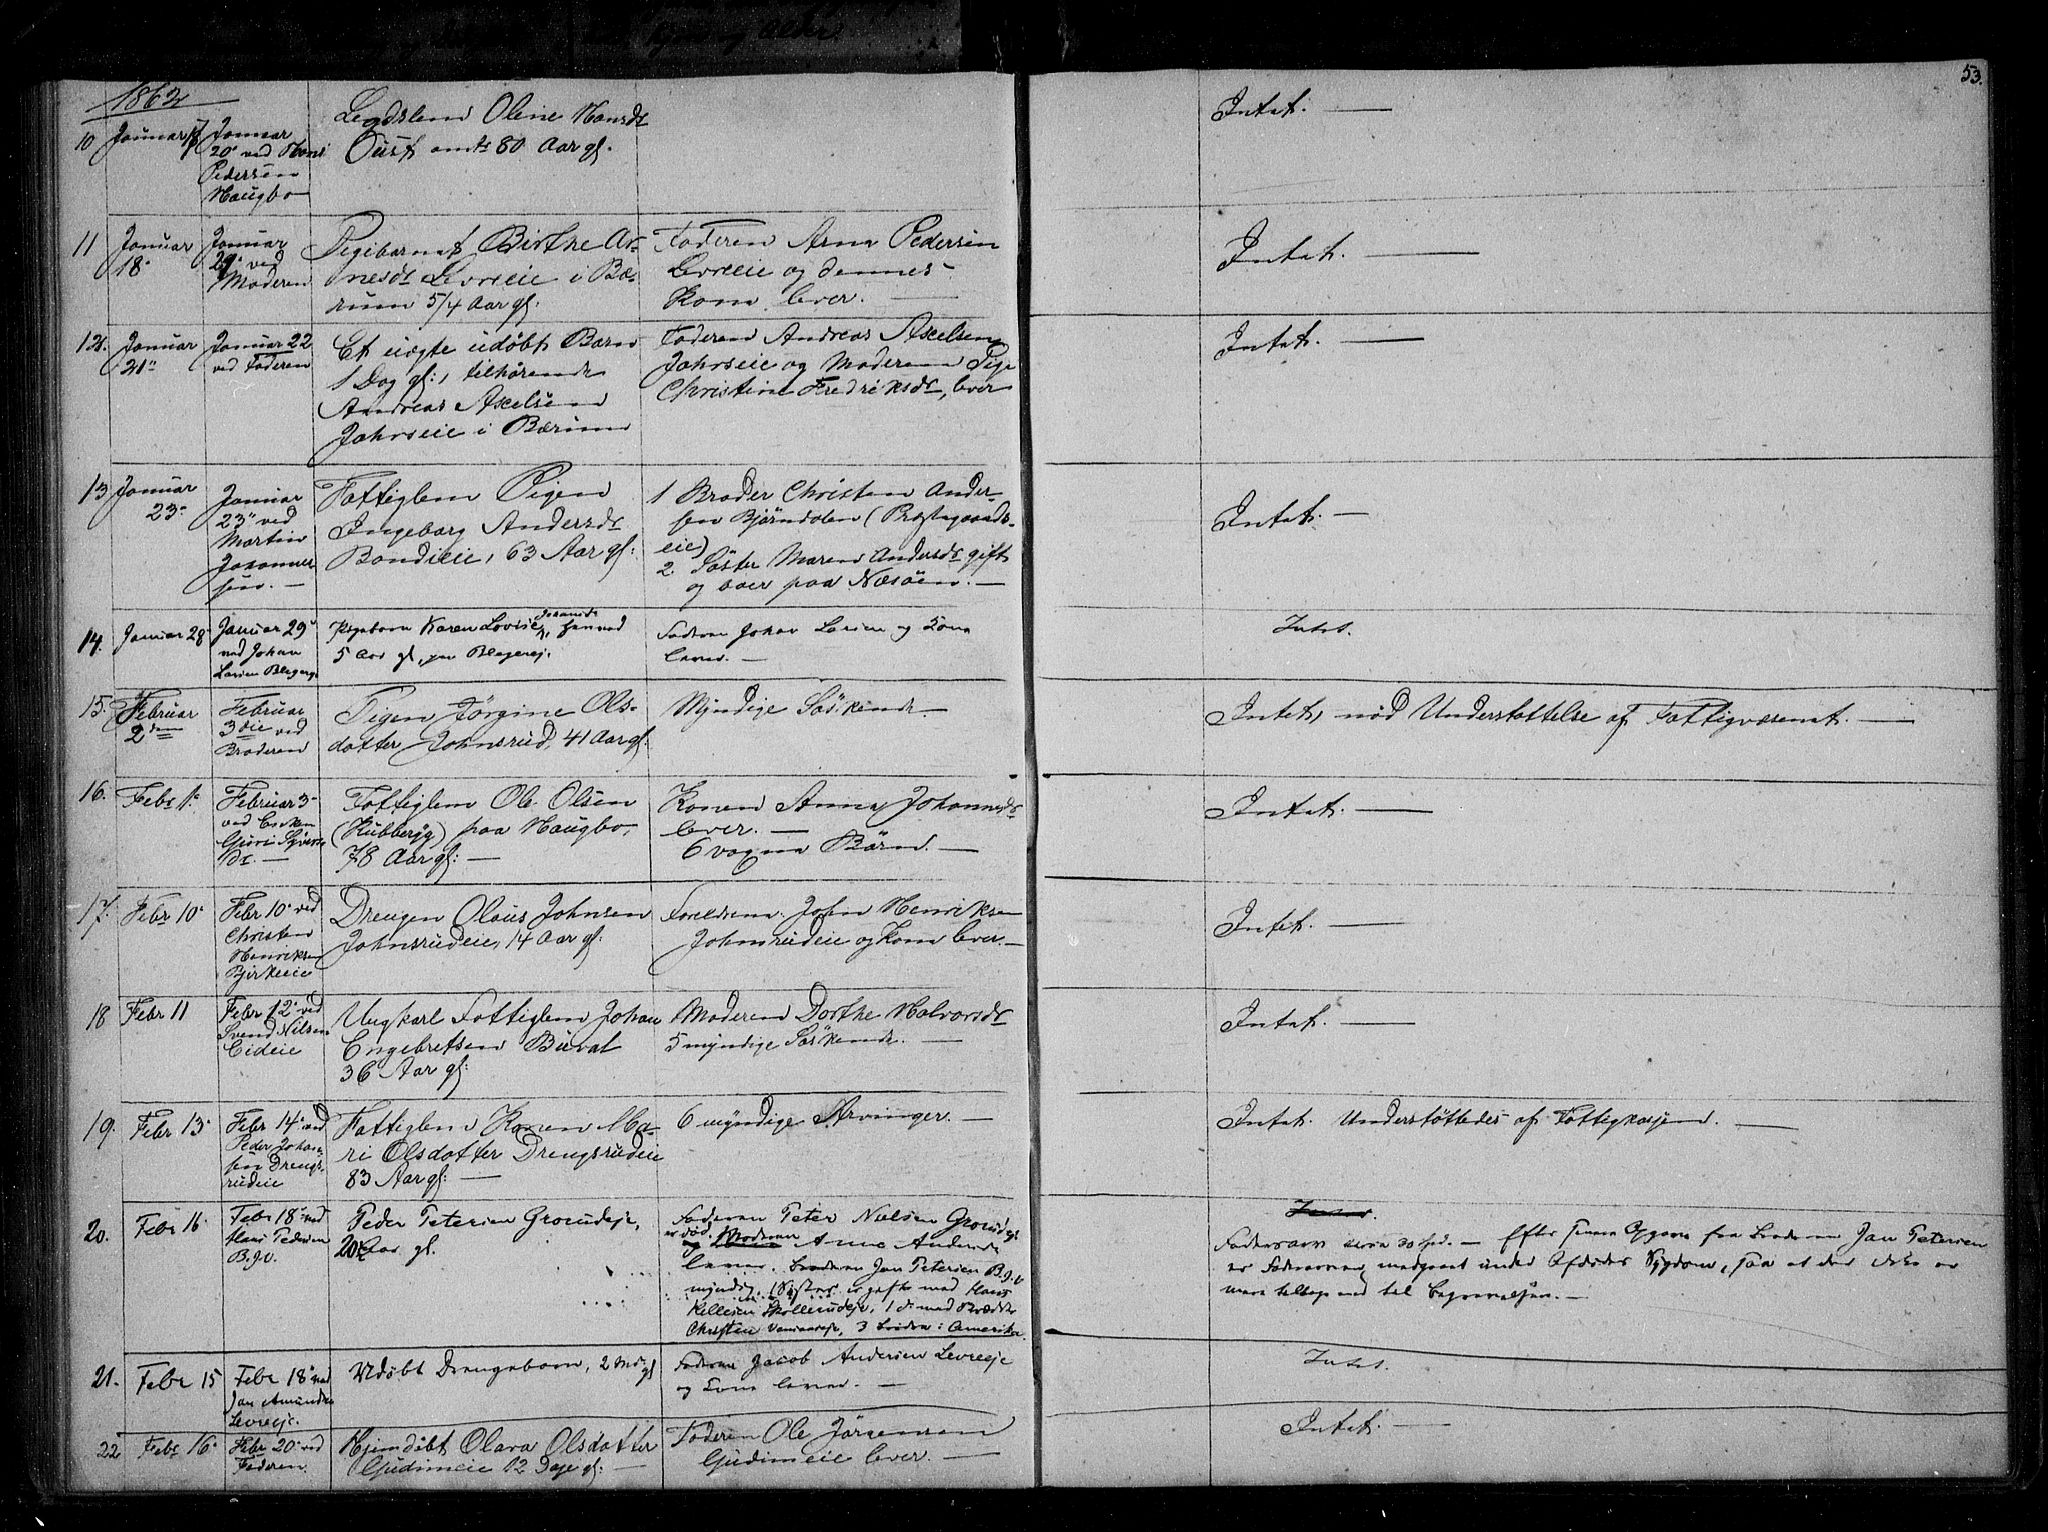 53.
1862
10 Januar 17 Januar
20de ved Hans
Pedersen
Haugbo
Legdslem Oline Hansdr
Oust omtr 80 Aar gl.
Intet. —
11 Januar
18de
Januar
29de ved
Moderen
Pigebarnet Birthe Ar-
nesdr Levreeie i Bæ-
rum 5/4 Aar gl:
Faderen Arne Pedersen
Levreeie og dennes
Kone lever. —
Intet. —
12. Januar
21de
Januar 22
ved Faderen
Et uægte udøbt Barn
1 Dag gl:, tilhørende
Andreas Axelsen
Jahrseie i Bærum
Faderen Andreas Axelsen
Jahrseie og Moderen Pige
Christine Fredriksdr, lever
Intet. —
13 Januar
23de
Januar
23de ved
Martin
Johannes-
sen. —
Fattiglem Pigen
Ingeborg Andersdr
Bondieie, 63 Aar gl:
1 Broder Christen Ander-
sen Bjørndalen (Præstegaards-
eie)
2. Søster Maren Andersdr gift
og boer paa Næsøen. —
Intet. —
14. Januar 28de
Januar 29de
ved Johan
Larsen
Pigebarn Karen Lovise
5 Aar gl,
Faderen Johan Larsen og Kone
lever. —
Intet.
15. Februar
2den
Februar
3die ved
Broderen
Pigen Jørgine Ols-
datter Johnsrud, 41 Aar gl:
Myndige Søskende —
Intet, nød Understøttelse af Fattigvæsenet. —
16. Febr 1ste
Februar 3de
ved Enken
Guri Syvers-
dr. —
Fattiglem Ole Olsen
(Kubberyg) paa Haugbo,
78 Aar gl: —
Konen Anne Johannesdr
lever. —
6 voxne Børn. —
Intet. —
17. Febr 10de
Febr 10de ved
Christen
Henriksen
Bjerkeeie
Drengen Olaus Johnsen
Johnsrudeie, 14 Aar gl:
Forældrene John Henriksen
Johnsrudeie og Kone lever. —
Intet. —
18 Febr 11
Febr 12de ved
Svend Nilsen
Eideie
Ungkarl Fattiglem Johan
Engebretsen Büvat
36 Aar gl:
Moderen Dorthe Halvorsdr
5 myndige Søskende. —
Intet. —
19. Febr 13de
Febr 14de ved
Peder Johan-
sen Drengs-
rudeie
Fattiglem Konen Ma-
ri Olsdatter Drengsrudeie
83 Aar gl: —
6 myndige Arvinger. —
Intet. Understøttedes af Fattigkassen. —
20. Febr 16de
Febr 18de ved
Hans Pedersen
Peder Petersen
20 Aar gl.
Faderen Peter Nielsen
er død. Moderen Anne Andersdr
lever. Broderen Jan Petersen
myndig. 1 Søster er gift med Hans
1 do med
Christen 3 Brødre i Amerika.
Intet.
Fadrearv circa 30 Spd. — Efter Opgave fra Broderen Jan Petersen
er Fadrearven medgaaet under Afdødes Sygdom, saa at der ikke er
mere tilbage end til Begravelsen. —
21. Febr 15
Febr 18de ved
Jan Amundsen
Levreeje.
Udøbt Drengebarn, 2 Mdr gl
Faderen Jacob Andersen Levreeje
og Kone lever. —
Intet.
22 Febr 16de
Febr 20de ved
Faderen.
Hjemdøbt Olava Olsdatter
Gudimeie 12 Dage gl: —
Faderen Ole Jørgensen
Gudimeie lever. —
Intet. —